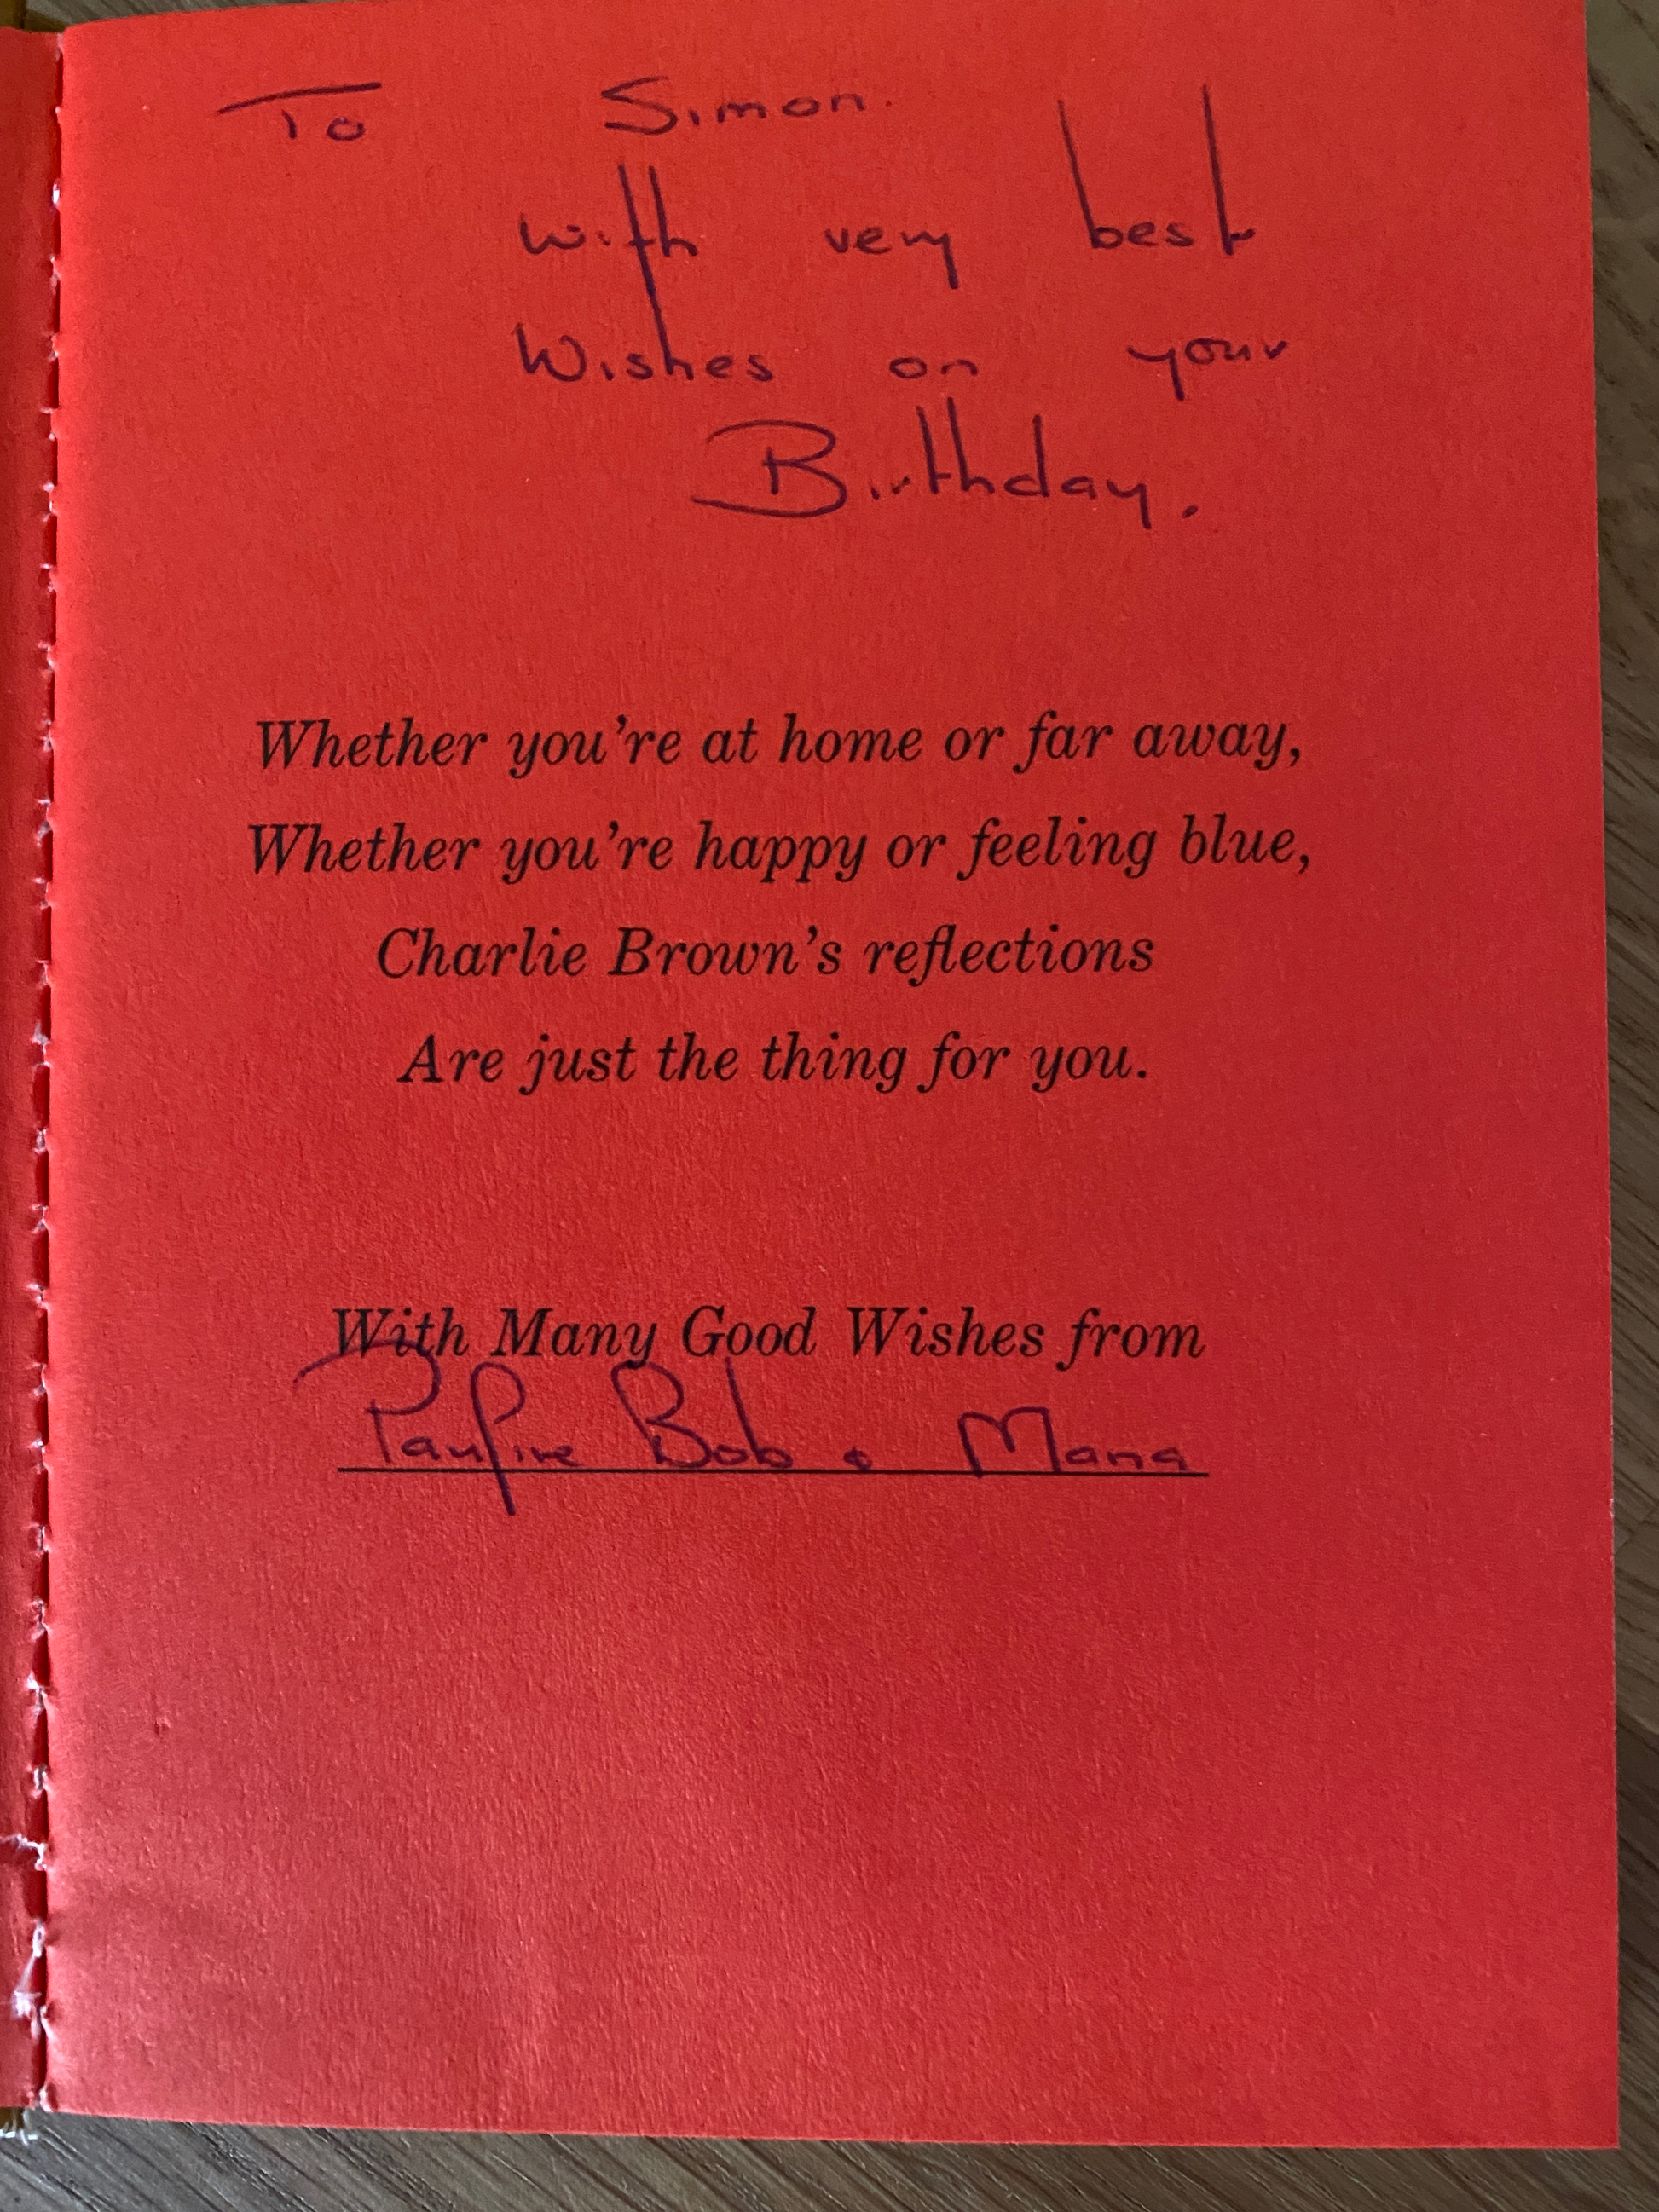 To Simon.
with very best
Wishes on your
Birthday.
Whether you're at home or far away,
Whether you're happy or feeling blue,
Charlie Brown's reflections
Are just the thing for you.
With Many Good Wishes from
Pauline Bob & Mana